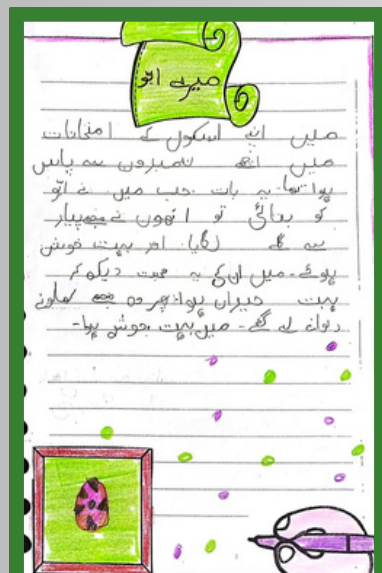 میرے ابو
میں اپنے اسکول کے امتحانات
میں اچھے نمبروں سے پاس
ہوا تھا۔ یہ بات جب میں نے ابّو
کو بتائی تو انھوں نے مجھے پیار
سے گلے لگایا۔ اور بہت خوش
ہوئے۔ میں ان کی یہ محبت دیکھ کر
بہت حیران ہوا۔ پھر وہ مجھے کھلونے
دلوانے لے گئے۔ میں بہت خوش ہوا۔